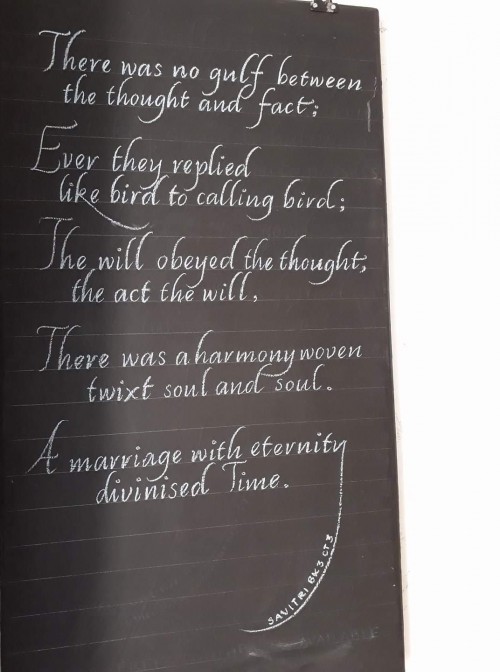 There was no gulf between
the thought and fact;
Ever they replied
like bird to calling bird;
The will obeyed the thought,
the act the will.
There was a harmony woven
twixt soul and soul.
A marriage with eternity
divinised Time.
SAVITRI BK3 CT3